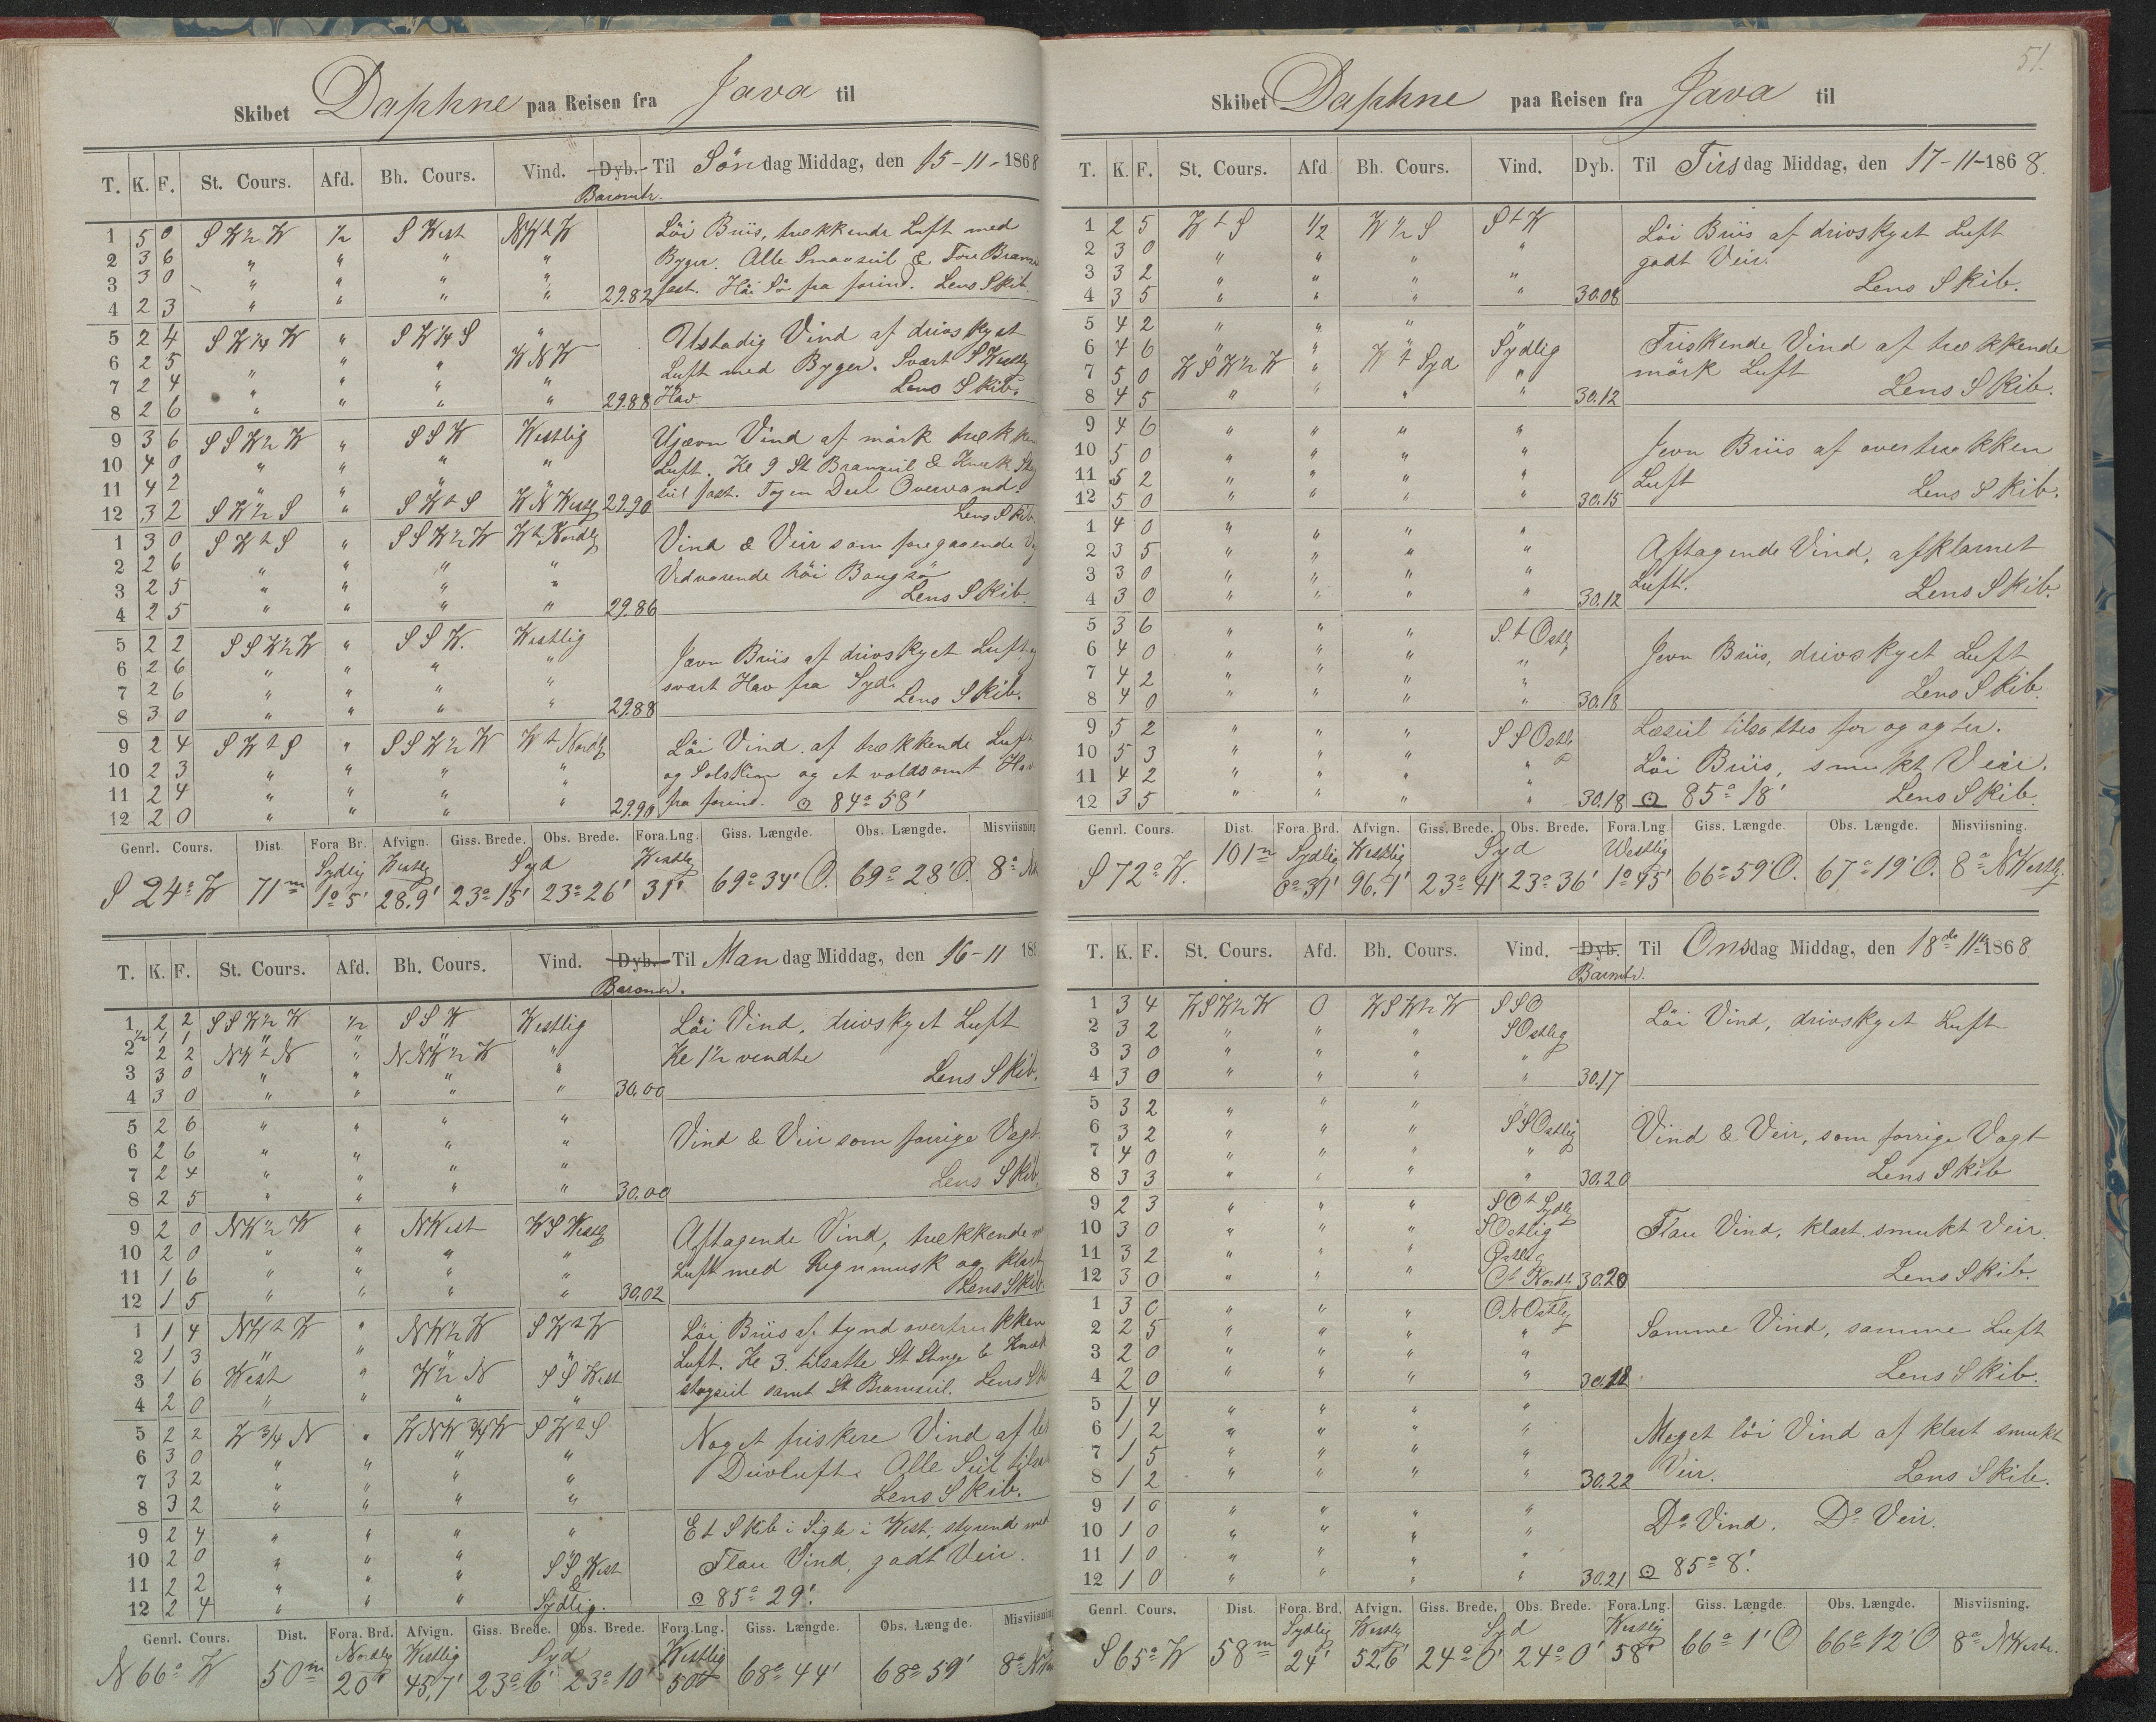 Skibet Daphne paa Reisen fra Java til
T. K. F. St. Cours. Afd. Bh. Cours. Vind. Dyb. Til Søndag Middag, den 15-11-1868
Baromtr.
1 5 0 SW½W ½ S West NW t W Löi Briis, trækkende Luft med
2 3 6 " " " " Byger. Alle Smaaseil & Fore Bramse
3 3 0 " " " " fast. Höi Sö fra forind. Lens Skib.
4 2 3 " " " " 29.82
5 2 4 SW¼W " SW¼S " Ustadig Vind af drivskyet
6 2 5 " " " WNW Luft med Byger. Svært SWestlig
7 2 4 " " " " Hav. Lens Skib.
8 2 6 " " " " 29.88
9 3 6 SSW½W " SSW Westlig Ujævn Vind af mörk trækken
10 4 0 " " " " Luft. Kl 9 St Bramseil & Knæk Stag
11 4 2 " " " " seil fast. Tog en Deel Overvand.
12 3 2 SW½S " SW t S WNWestlg 29.90 Lens Skib.
1 3 0 SW t S " SSW½W W t Nordlg Vind & Veir som foregaaende V
2 2 6 " " " " Vedvarende höi Bougsö
3 2 5 " " " " Lens Skib.
4 2 5 " " " " 29.86
5 2 2 SSW½W " SSW. Westlig
6 2 6 " " " " Jævn Briis af drivskyet Luft og
7 2 6 " " " " svært Hav fra Syd. Lens Skib.
8 3 0 " " " " 29.88
9 2 4 SW t S " SSW½W W t Nordlg Löi Vind af trækkende Luft
10 2 3 " " " " og Solskin og et voldsomt Hav
11 2 4 " " " " fra forind. ⊙ 84° 58'
12 2 0 " " " 29.90
Genrl. Cours. Dist Fora Br. Afvign. Giss. Brede. Obs. Brede. Fora.Lng. Giss. Længde. Obs. Længde. Misviisning
Sydlig Westlg Syd Westlg
S 24° W 71m 1° 5' 28.9' 23° 15' 23° 26' 31' 69° 34' O. 69° 28' O. 8°
T. K. F. St. Cours. Afd. Bh. Cours. Vind. Dyb. Til Mandag Middag, den 16-11 186
Baromtr.
1 2 2 SSW½W ½ SSW Westlig Löi Vind, drivskyet Luft
½ 1 1 " " "
2 2 2 NW t N " NNW½W " Kl 1½ vendte
3 3 0 " " " " Lens Skib.
4 3 0 " " " " 30.00
5 2 6 " " "
6 2 6 " " " " Vind & Veir som forrige Vagt.
7 2 4 " " " " Lens Skib.
8 2 5 " " " " 30.00
9 2 0 NW½W " NWest WSWestlg Aftagende Vind, trækkende
10 2 0 " " " " Luft med Regnmusk og klart
11 1 6 " " " " Lens Skib
12 1 5 " " " " 30.02
1 1 4 NW t W " NW½W SW t W Löi Briis af tynd overtrukken
2 1 3 " " " " Luft. Kl 3. tilsatte St Stnge & Knæk
3 1 6 West " W½N SSWest stagseil samt St Bramseil. Lens Sk
4 2 0 " " " "
5 2 2 W¾N " WNW¾W SW t S Noget friskere Vind af let
6 3 0 " " " " Drivluft. Alle Seil tilsat
7 3 2 " " " " Lens Skib.
8 3 2 " " " "
9 2 4 " " " " Et Skib i Sigte i West, styrend med
10 2 0 " " " SSWest Flau Vind, godt Veir.
11 2 2 " " " &
12 2 4 " " " Sydlig. ⊙ 85° 29'.
Genrl. Cours. Dist. Fora. Brd. Afvign. Giss. Brede. Obs. Brede. Fora.Lng. Giss. Længde. Obs. Længde. Misviisning
Nordlg Westlig Syd Westlig
N 66° W 50m 20' 45,7' 23° 6' 23° 10' 50' 68° 44' 68° 59' 8°
51.
Skibet Daphne paa Reisen fra Java til
T. K. F. St. Cours. Afd. Bh. Cours. Vind. Dyb. Til Tirsdag Middag, den 17-11-1868.
1 2 5 W t S ½ W½S S t W Löi Briis af drivskyet Luft
2 3 0 " " " " godt Veir.
3 3 2 " " " Lens Skib.
4 3 5 " " " " 30.08
5 4 2 " " " "
6 4 6 " " " Sydlig Friskende Vind af trækkende
7 5 0 WSW½W " W t Syd " mörk Luft
8 4 5 " " " " 30.12 Lens Skib.
9 4 6 " " " "
10 5 0 " " " " Jevn Briis af overtrukken
11 5 2 " " " " Luft
12 5 0 " " " " 30.15 Lens Skib.
1 4 0 " " " "
2 3 5 " " " " Aftagende Vind, afklarnet
3 3 0 " " " " Luft.
4 3 0 " " " " 30.12 Lens Skib.
5 3 6 " " " S. t Ostlg
6 4 0 " " " " Jevn Briis, drivskyet Luft
7 4 2 " " " "
8 4 0 " " " " 30.18 Lens Skib.
9 5 2 " " " SSOstlg Læseil tilsattes for og agter.
10 5 3 " " " Löi Briis, smukt Veir.
11 4 2 " " " "
12 3 5 " " " " 30.18 ⊙ 85° 18' Lens Skib.
Genrl. Cours. Dist. Fora. Brd. Afvign. Giss. Brede. Obs. Brede. Fora.Lng Giss. Længde. Obs. Længde. Misviisning.
Sydlig Westlig Syd Westlig
S 72° W. 101m 0° 31' 96.1' 23° 41' 23° 36' 1° 45' 66° 59' O. 67° 19' O. 8° NWestlg.
T. K. F. St. Cours. Afd. Bh. Cours. Vind. Dyb. Til Onsdag Middag, den 18de 11te 1868
Baromtr.
1 3 4 WSW½W 0 WSW½W SSO Löi Vind, drivskyet Luft
2 3 2 " " " SOstlig
3 3 0 " " " "
4 3 0 " " " " 30.17
5 3 2 " " " "
6 3 2 " " " SSOstlig Vind & Veir, som forrige Vagt
7 4 0 " " " "
8 3 3 " " " " 30.20 Lens Skib
9 2 3 " " " SO t Sydlg
10 3 0 " " " SOstlig Flau Vind, klart smukt Veir.
11 3 2 " " " Ostlig
12 3 0 " " " O t Nordl. 30.20 Lens Skib.
1 3 0 " " " ONOstlig
2 2 5 " " " " Samme Vind, samme Luft
3 2 0 " " " "
4 2 0 " " " " 30.18 Lens Skib.
5 1 4 " " " "
6 1 2 " " " " Meget löi Vind af klart smukt
7 1 5 " " " " Veir.
8 1 2 " " " " 30.22 Lens Skib.
9 1 0 " " " "
10 1 0 " " " " Do Vind. Do Veir.
11 1 0 " " " "
12 1 0 " " " " 30.21 ⊙ 85° 8'.
Genrl. Cours. Dist. Fora. Brd. Afvign. Giss. Brede. Obs. Brede. Fora.Lng. Giss. Længde. Obs. Længde. Misviisning.
Sydlig Westlg Syd Westlig
S 65° W 58m 24' 52,6' 24° 0' 24° 0' 58' 66° 1' O 66° 12' O 8° NWestr.